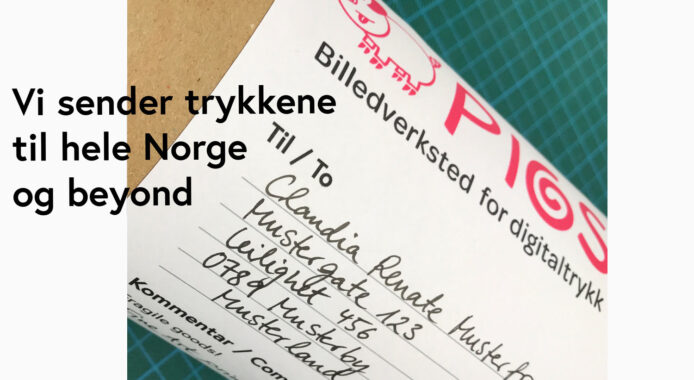 Vi sender trykkene
til hele Norge
og beyond
PIOS
Billedverksted for digitaltrykk
Til / To
Claudia Renate
Mustergate 123
Leilighet 456
0789 Musterby
Musterland
Kommentar / Com
Fragile goods!